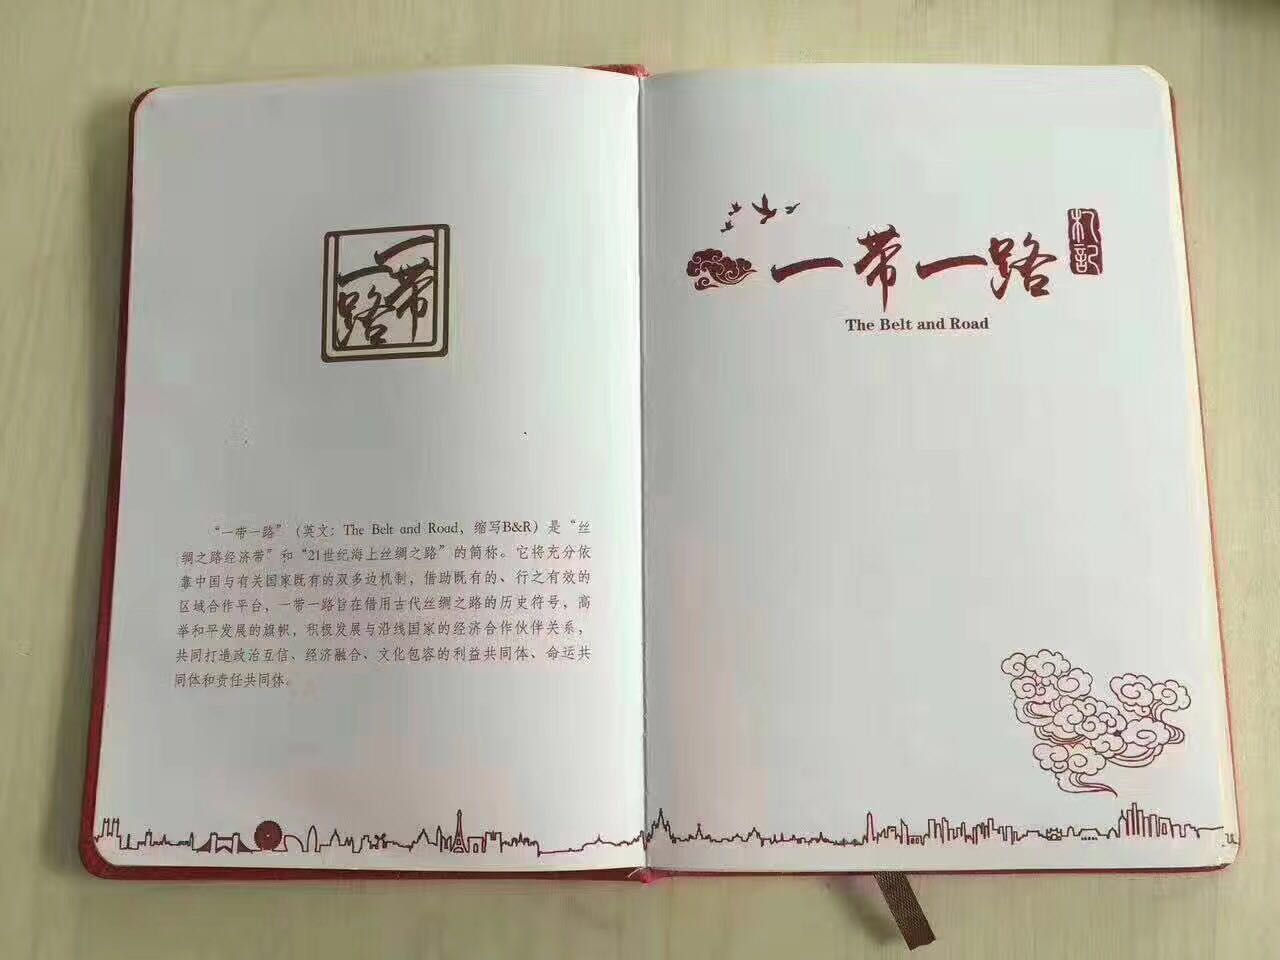 一带
一路
“一带一路”（英文：The Belt and Road，缩写B&R）是“丝
绸之路经济带”和“21世纪海上丝绸之路”的简称。它将充分依
靠中国与有关国家既有的双多边机制，借助既有的、行之有效的
区域合作平台，一带一路旨在借用古代丝绸之路的历史符号，高
举和平发展的旗帜，积极发展与沿线国家的经济合作伙伴关系，
共同打造政治互信、经济融合、文化包容的利益共同体、命运共
同体和责任共同体。
一带一路
札記
The Belt and Road